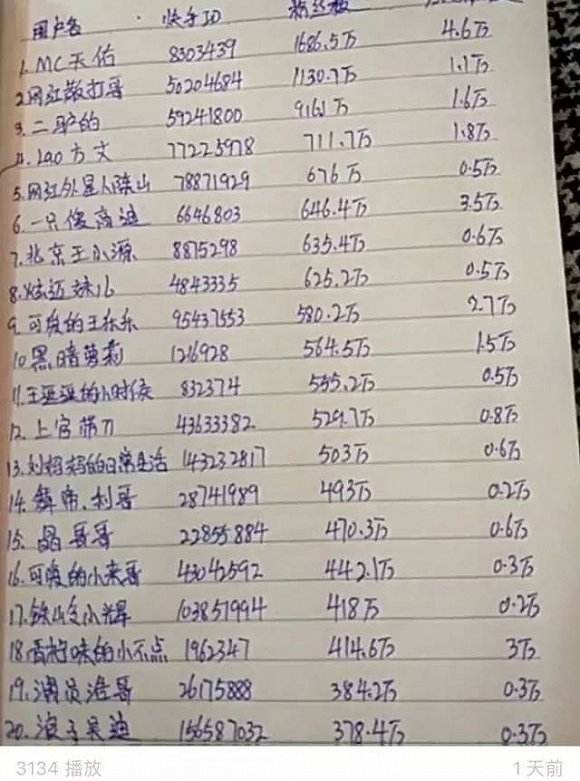 用户名 快手ID 粉丝数
1. MC天佑 8303439 1686.5万 4.6万
2.网红散打哥 50204684 1130.7万 1.1万
3.二驴的 59241800 916.1万 1.6万
4. lao方丈 77225978 711.7万 1.8万
5.网红外星人陈山 78871929 676万 0.5万
6.一只傻高迪 6646803 646.4万 3.5万
7.北京王小源 8875298 635.4万 0.6万
8.炫迈妹儿 4843335 625.2万 0.5万
9.可爱的王乐乐 95437553 580.2万 2.7万
10黑暗萝莉 1216928 564.5万 1.5万
11.王逗逗的小时候 832374 555.2万 0.5万
12.上官带刀 43633382 529.7万 0.8万
13.刘妈妈的日常生活 143232817 503万 0.6万
14.辉帝.利哥 28741989 493万 0.2万
15.晶哥哥 22855884 470.3万 0.6万
16.可爱的小来哥 43042592 442.1万 0.3万
17.铁山令小辉 103857994 418万 0.2万
18.香柠味的小不点 1962347 414.6万 3万
19.演员淮哥 26175888 384.2万 0.3万
20.浪子吴迪 156587032 378.4万 0.3万
3134 播放 1天前